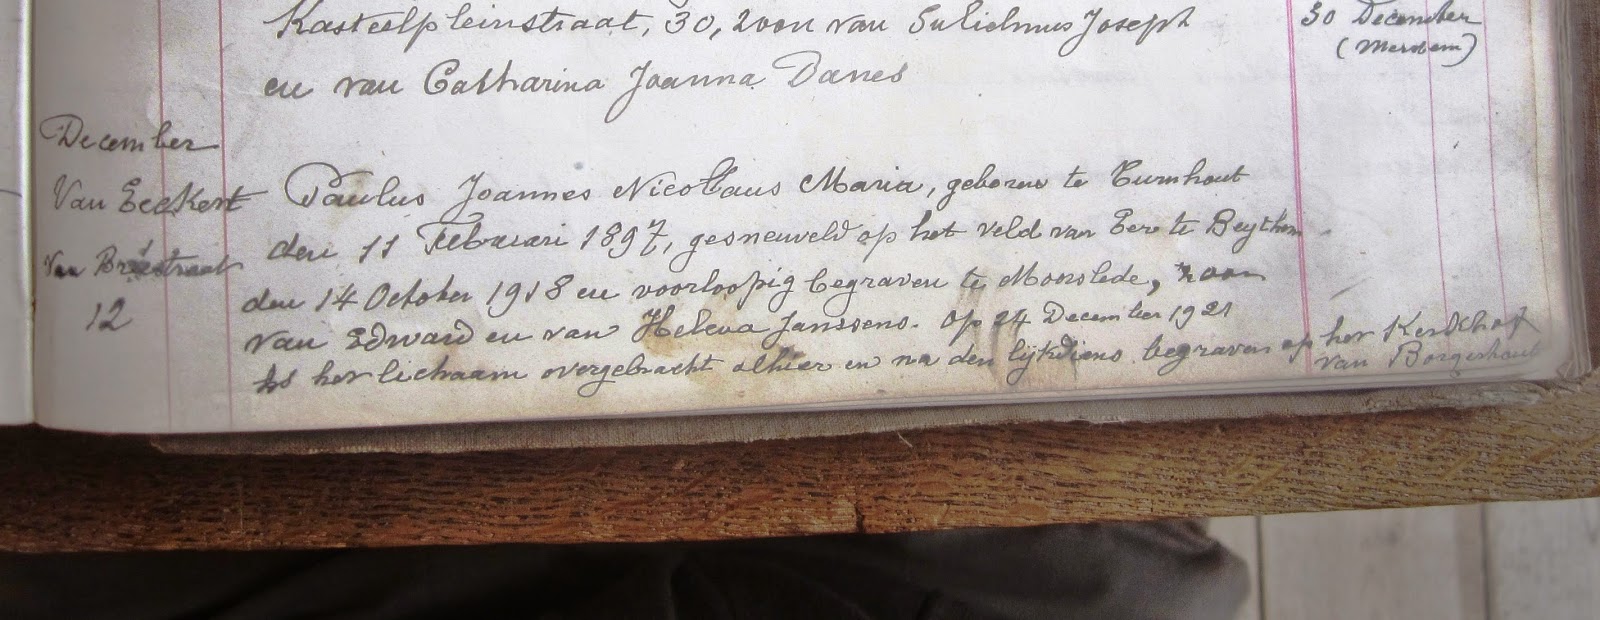 Kasteelpleinstraat, 30, zoon van Gulielmus Joseph
en van Catharina Joanna Danes
30 December
(Merxem)
December
Van Eeckert
Van Bréestraat
12
Paulus Joannes Nicolaus Maria, geboren te Turnhout
den 11 Februari 1897, gesneuveld op het veld van Eere te Beythem
den 14 October 1918 en voorloopig begraven te Moorslede, zoon
van Edward en van Helena Janssens. Op 24 December 1921
is het lichaam overgebracht alhier en na den lijkdienst begraven op het Kerkhof
van Borgerhout